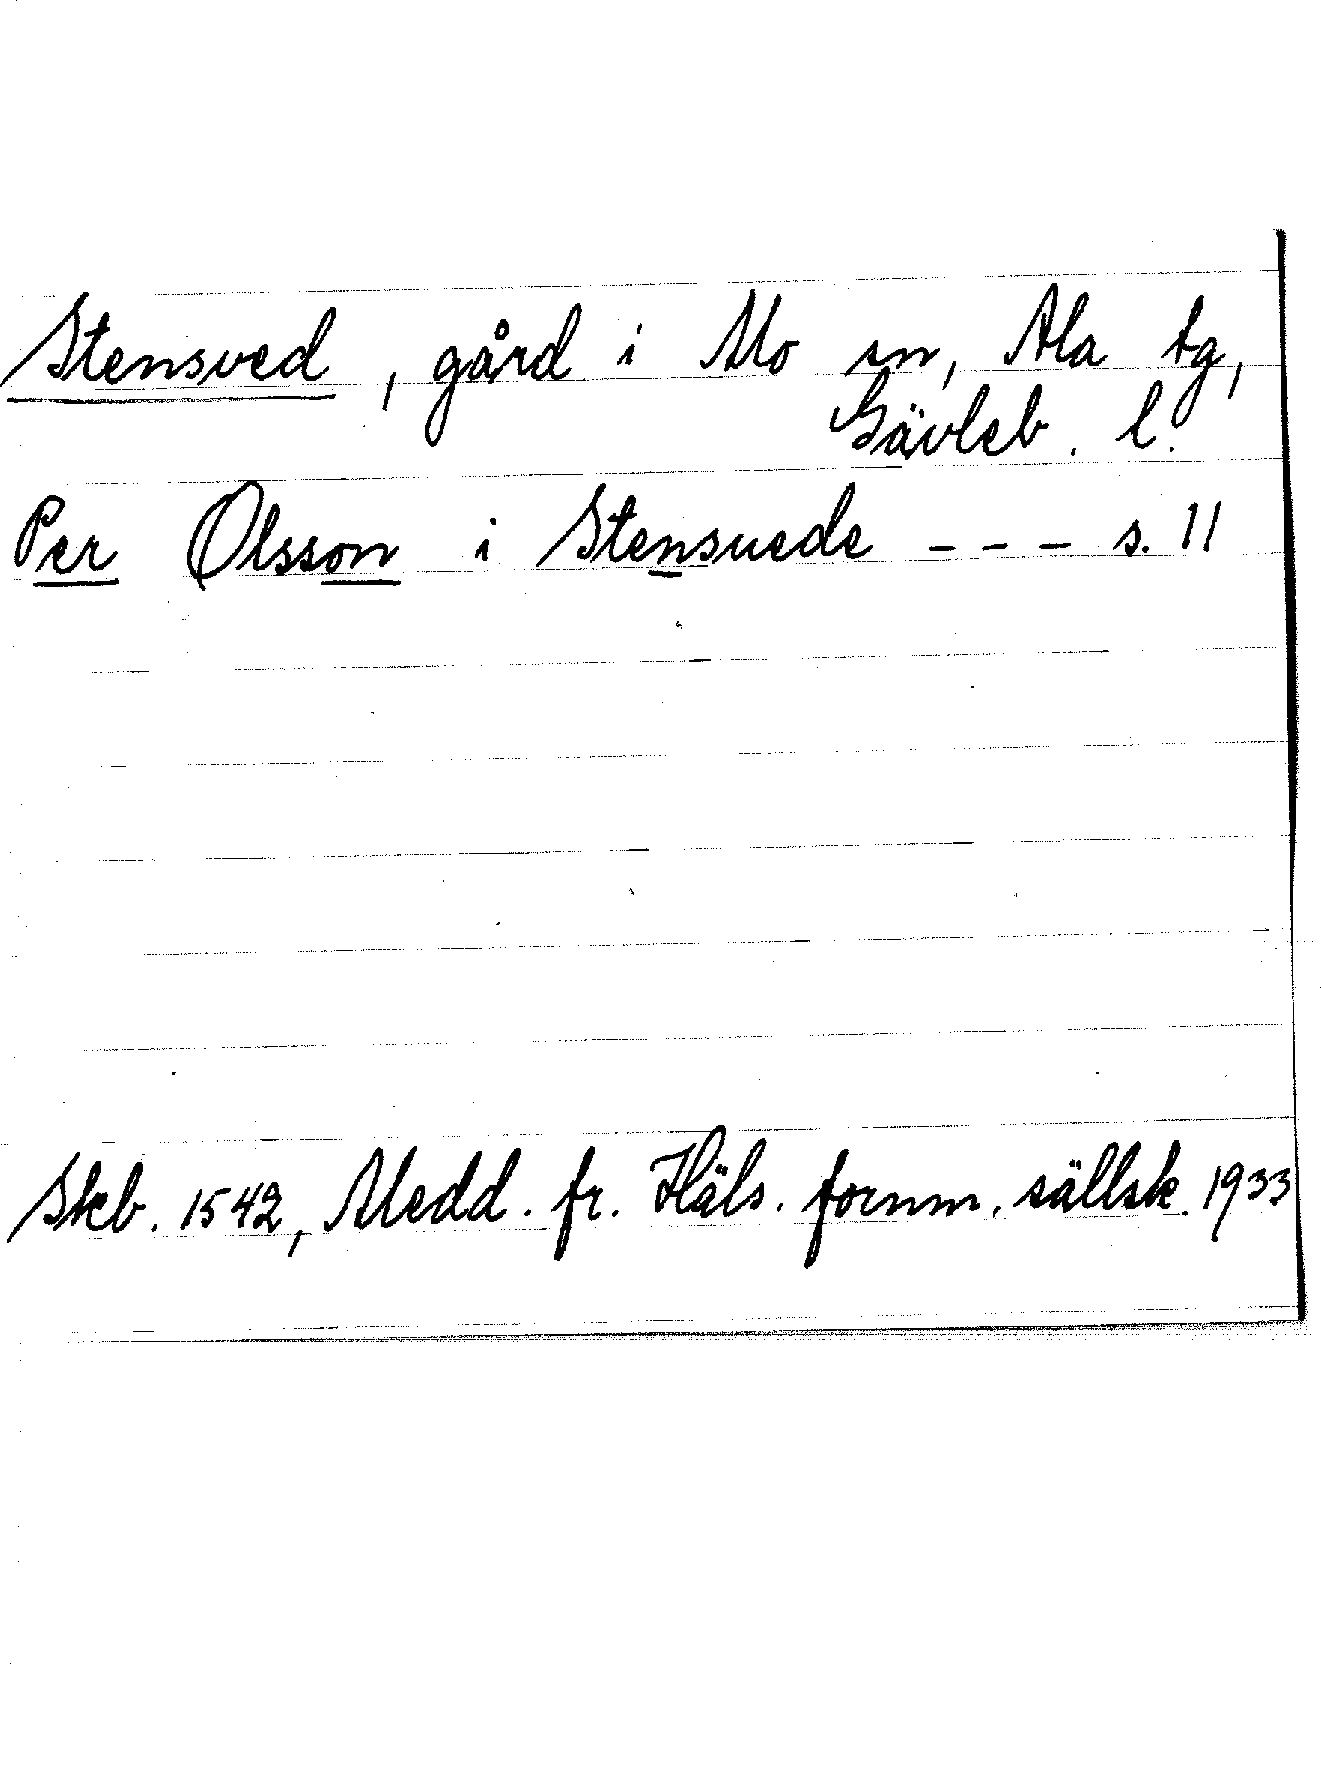 Stensved, gård i Mo sn, Ala tg,
Gävleb. l.
Per Olsson i Stensuede --- s. 11
Skb. 1542, Medd. fr. Häls. fornm. sällsk. 1933